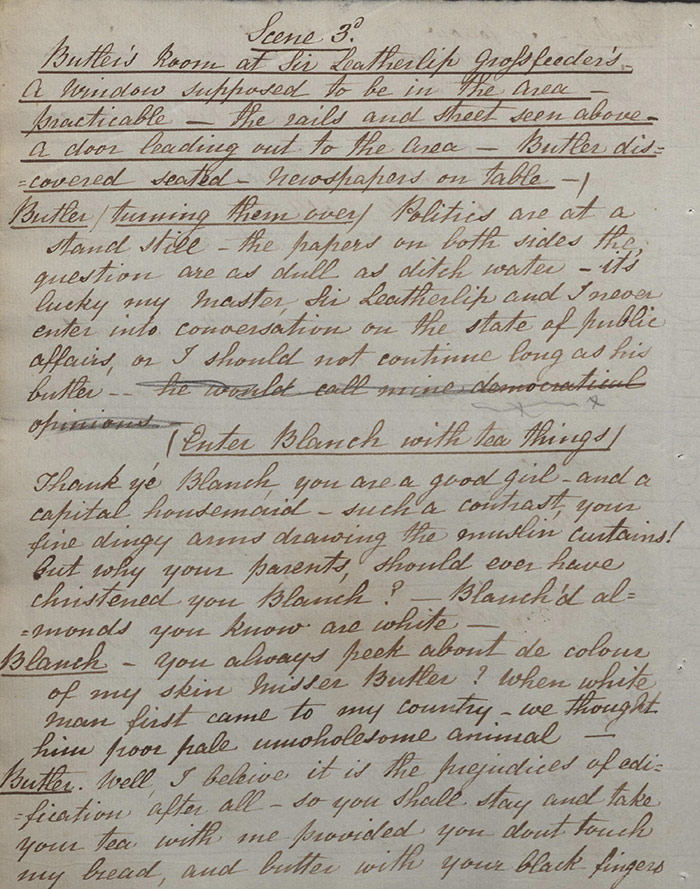 Scene 3d.
Butler's Room at Sir Leatherlip Grossfeeder's
A window supposed to be in the Area –
practicable – the rails and street seen above –
A door leading out to the Area – Butler dis=
=covered seated – Newspapers on table –/
Butler /turning them over/ Politics are at a
stand still – the papers on both sides the
question are as dull as ditch water – it's
lucky my Master, Sir Leatherlip and I never
enter into conversation on the state of public
affairs, or I should not continue long as his
butler – – he would call mine democratical
opinions
(Enter Blanch with tea things/
Thank ye Blanch, you are a good girl – and a
capital housemaid – such a contrast, your
fine dingy arms drawing the muslin curtains!
but why your parents, should ever have
christened you Blanch? – Blanch'd al=
=monds you know are white –
Blanch – you always peek about de colour
of my skin Misser Butler? When white
man first came to my country – we thought
him poor pale unwholesome animal –
Butler. Well, I beleive it is the prejudices of edi=
=fication after all – so you shall stay and take
your tea with me provided you dont touch
my bread, and butter with your black fingers